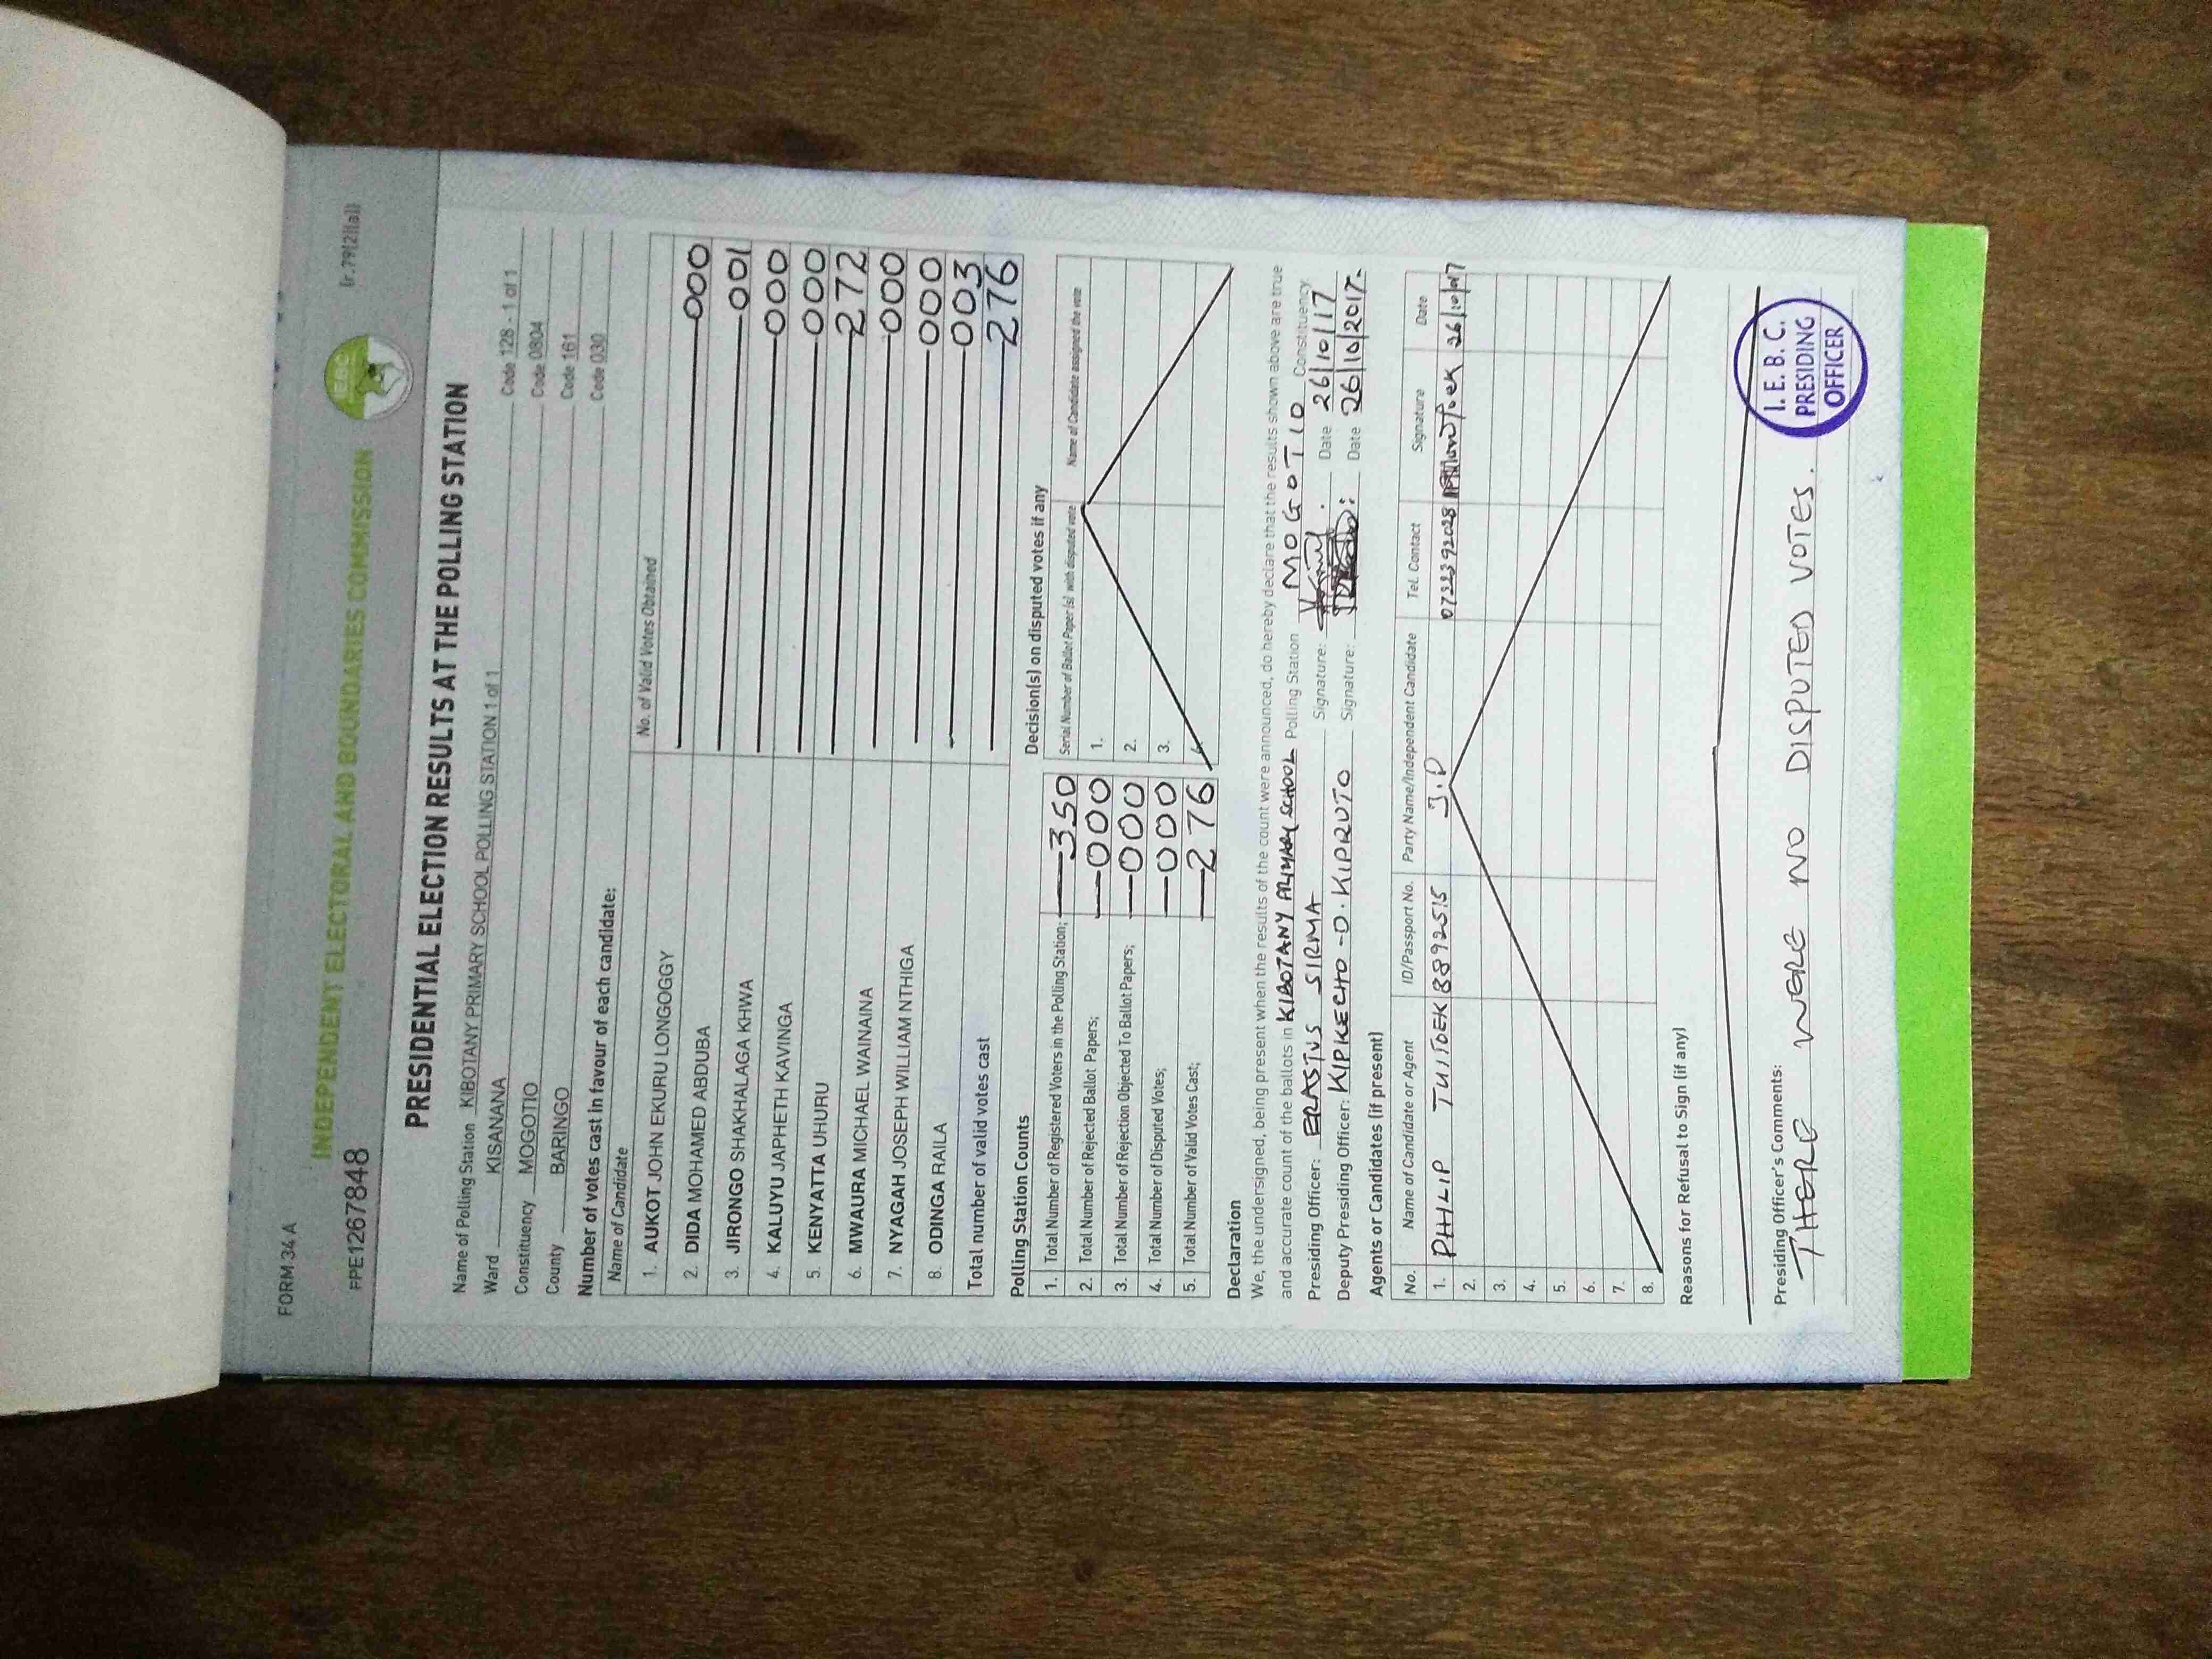 FORM 34 A
INDEPENDENT ELECTORAL AND BOUNDARIES COMMISSION
IEBC
(r.79(2)(a))
FPE1267848
PRESIDENTIAL ELECTION RESULTS AT THE POLLING STATION
Name of Polling Station KIBOTANY PRIMARY SCHOOL POLLING STATION 1 of 1 Code 128 - 1 of 1
Ward KISANANA Code 0804
Constituency MOGOTIO Code 161
County BARINGO Code 030
Number of votes cast in favour of each candidate:
Name of Candidate No. of Valid Votes Obtained
1. AUKOT JOHN EKURU LONGOGGY 000
2. DIDA MOHAMED ABDUBA 001
3. JIRONGO SHAKHALAGA KHWA 000
4. KALUYU JAPHETH KAVINGA 000
5. KENYATTA UHURU 272
6. MWAURA MICHAEL WAINAINA 000
7. NYAGAH JOSEPH WILLIAM NTHIGA 000
8. ODINGA RAILA 003
Total number of valid votes cast 276
Polling Station Counts
1. Total Number of Registered Voters in the Polling Station; 350
2. Total Number of Rejected Ballot Papers; 000
3. Total Number of Rejection Objected To Ballot Papers; 000
4. Total Number of Disputed Votes; 000
5. Total Number of Valid Votes Cast; 276
Decision(s) on disputed votes if any
Serial Number of Ballot Paper (s) with disputed vote Name of Candidate assigned the vote
1.
2.
3.
4.
Declaration
We, the undersigned, being present when the results of the count were announced, do hereby declare that the results shown above are true
and accurate count of the ballots in KIBOTANY PRIMARY SCHOOL Polling Station MOGOTIO Constituency
Presiding Officer: ERASTUS SIRMA Signature: Date 26/10/17
Deputy Presiding Officer: KIPKECHO-D. KIPRUTO Signature: Date 26/10/2017.
Agents or Candidates (if present)
No. Name of Candidate or Agent ID/Passport No. Party Name/Independent Candidate Tel. Contact Signature Date
1. PHILIP TUITOEK 8892515 J.P 0722392028 26/10/017
2.
3.
4.
5.
6.
7.
8.
Reasons for Refusal to Sign (if any)
Presiding Officer's Comments:
THERE WERE NO DISPUTED VOTES.
I. E. B. C.
PRESIDING
OFFICER